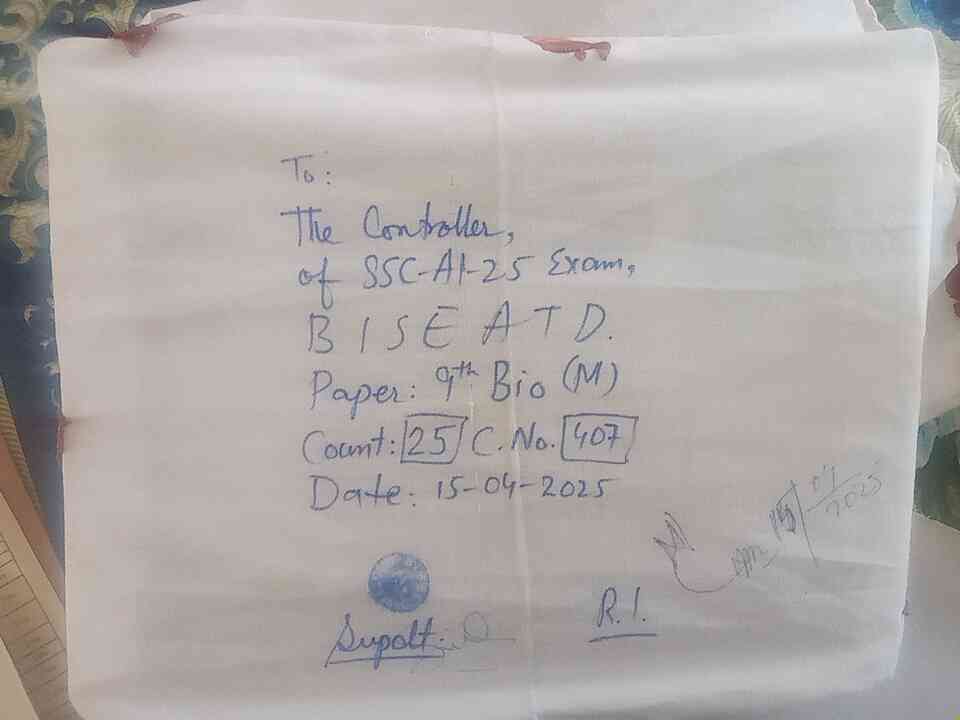 To:
The Controller,
of SSC-A1-25 Exam,
B I S E A T D.
Paper: 9th Bio (M)
Count: 25 C. No. 407
Date: 15-04-2025
2025
Supdt.
R.I.